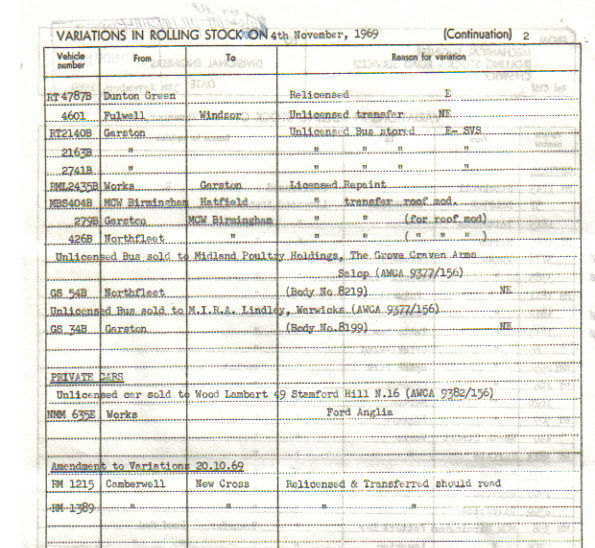 VARIATIONS IN ROLLING STOCK ON 4th November, 1969 (Continuation) 2
Vehicle number From To Reason for variation
RT4787B Dunton Green Relicensed E
4601 Fulwell Windsor Unlicensed transfer NE
RT2140B Garston Unlicensed Bus stored E- SVS
2163B " " " " "
2741B " " " " "
RML2435B Works Garston Licensed Repaint
MBS404B MCW Birmingham Hatfield " transfer roof mod.
279B Garston MCW Birmingham " " (for roof mod)
426B Northfleet " " " ( " " " )
Unlicensed Bus sold to Midland Poultry Holdings, The Grove Craven Arms
Salop (AWCA 9377/156)
GS 54B Northfleet (Body No.8219) NE
Unlicensed Bus sold to M.I.R.A. Lindley, Warwicks (AWCA 9377/156)
GS 34B Garston (Body No.8199) NE
PRIVATE CARS
Unlicensed car sold to Wood Lambert 49 Stamford Hill N.16 (AWCA 9382/156)
NMM 635E Works Ford Anglia
Amendment to Variations 20.10.69
RM 1215 Camberwell New Cross Relicensed & Transferred should read
RM 1389 " " " "